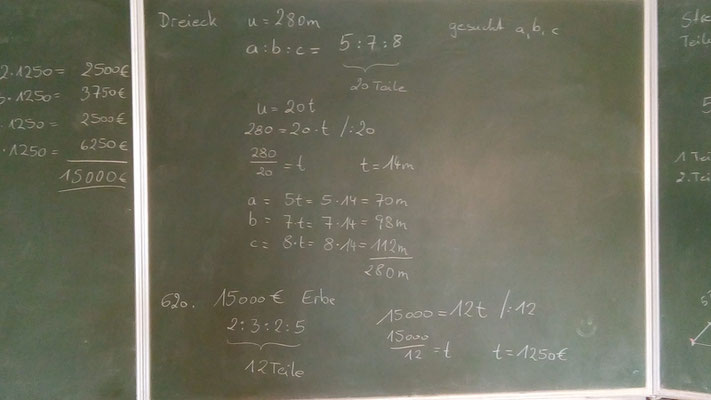 2·1250= 2500€
·1250= 3750€
·1250= 2500€
·1250= 6250€
15000€
Dreieck u=280m gesucht a,b,c
a:b:c= 5:7:8
20 Teile
u=20t
280=20·t /:20
280/20 =t t=14m
a= 5t= 5·14= 70m
b= 7t= 7·14= 98m
c= 8·t= 8·14= 112m
280m
620. 15000€ Erbe
2:3:2:5
12 Teile
15000=12t /:12
15000/12 =t t=1250€
Teile
5
1 Tei
2.Tei